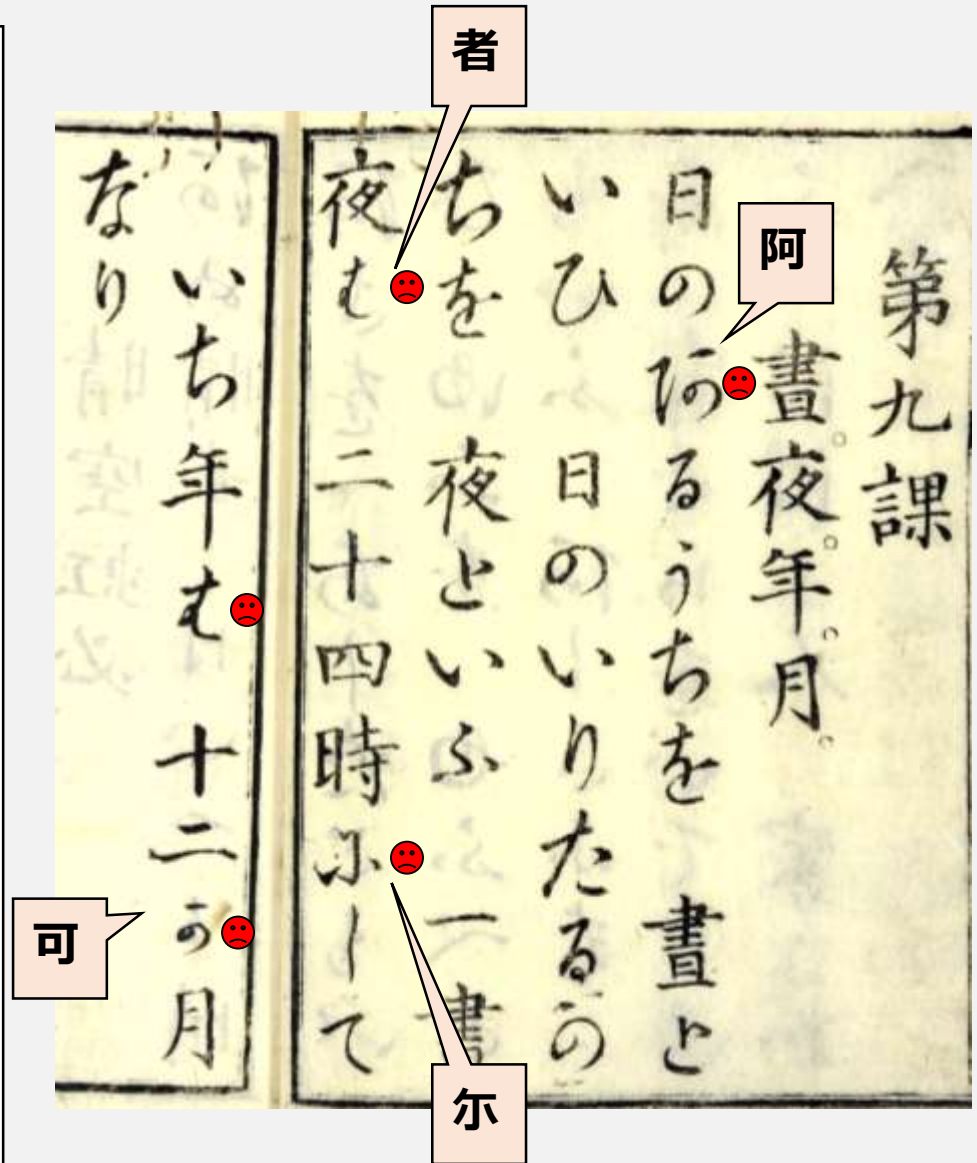 者
阿
第九課
晝。夜。年。月。
日のあるうちを 晝と
いひ 日のいりたるの
ちを 夜といふ 一晝
夜は 二十四時にして
いち年は 十二か月
なり
可
尓